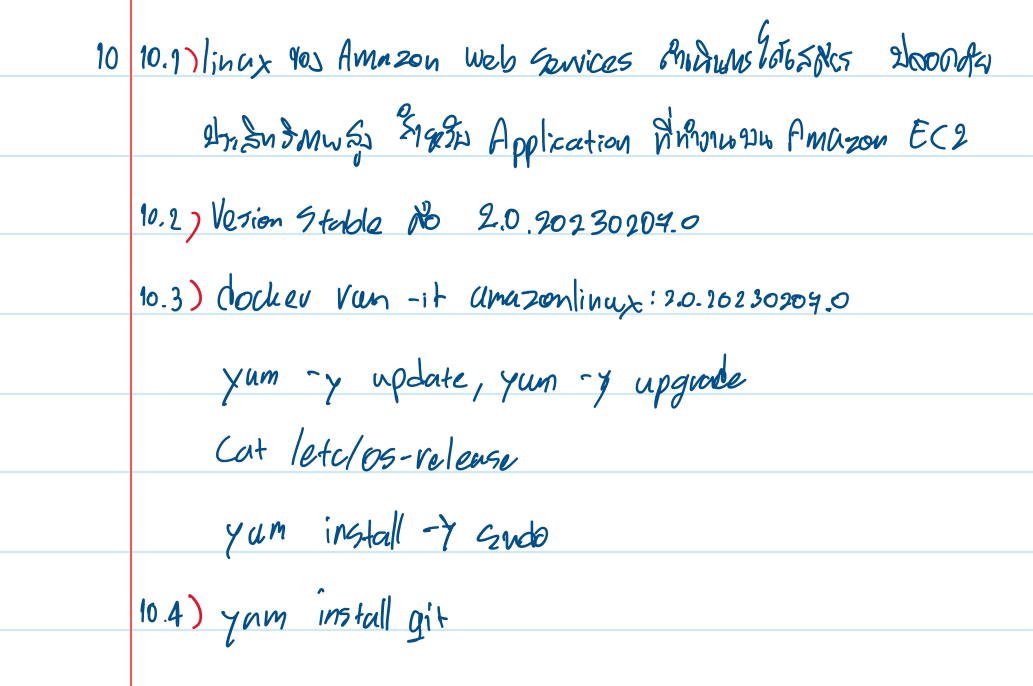 10 10.1) linux ของ Amazon Web Services ดำเนินการได้เสถียร ปลอดภัย
ประสิทธิภาพสูง สำหรับ Application ที่ทำงานบน Amazon EC2
10.2) Vesion Stable คือ 2.0.20230207.0
10.3) docker run -it amazonlinux:2.0.20230207.0
yum -y update, yum -y upgrade
Cat /etc/os-release
yum install -y sudo
10.4) yum install git